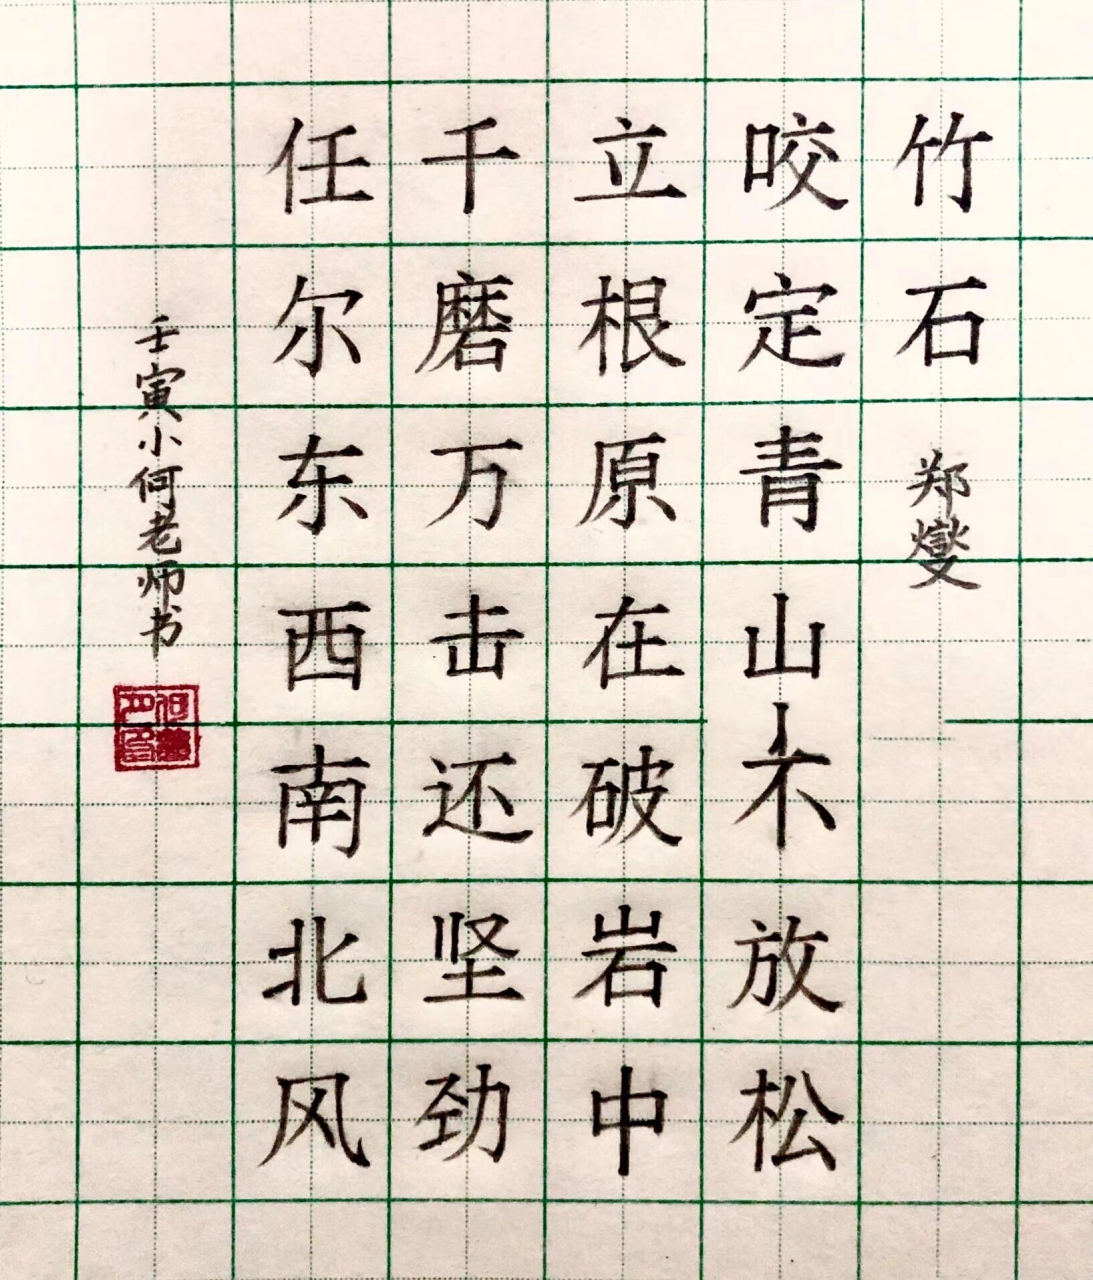 竹石 郑燮
咬定青山放松
立根原在破岩中
千磨万击还坚劲
任尔东西南北风
壬寅小何老师书